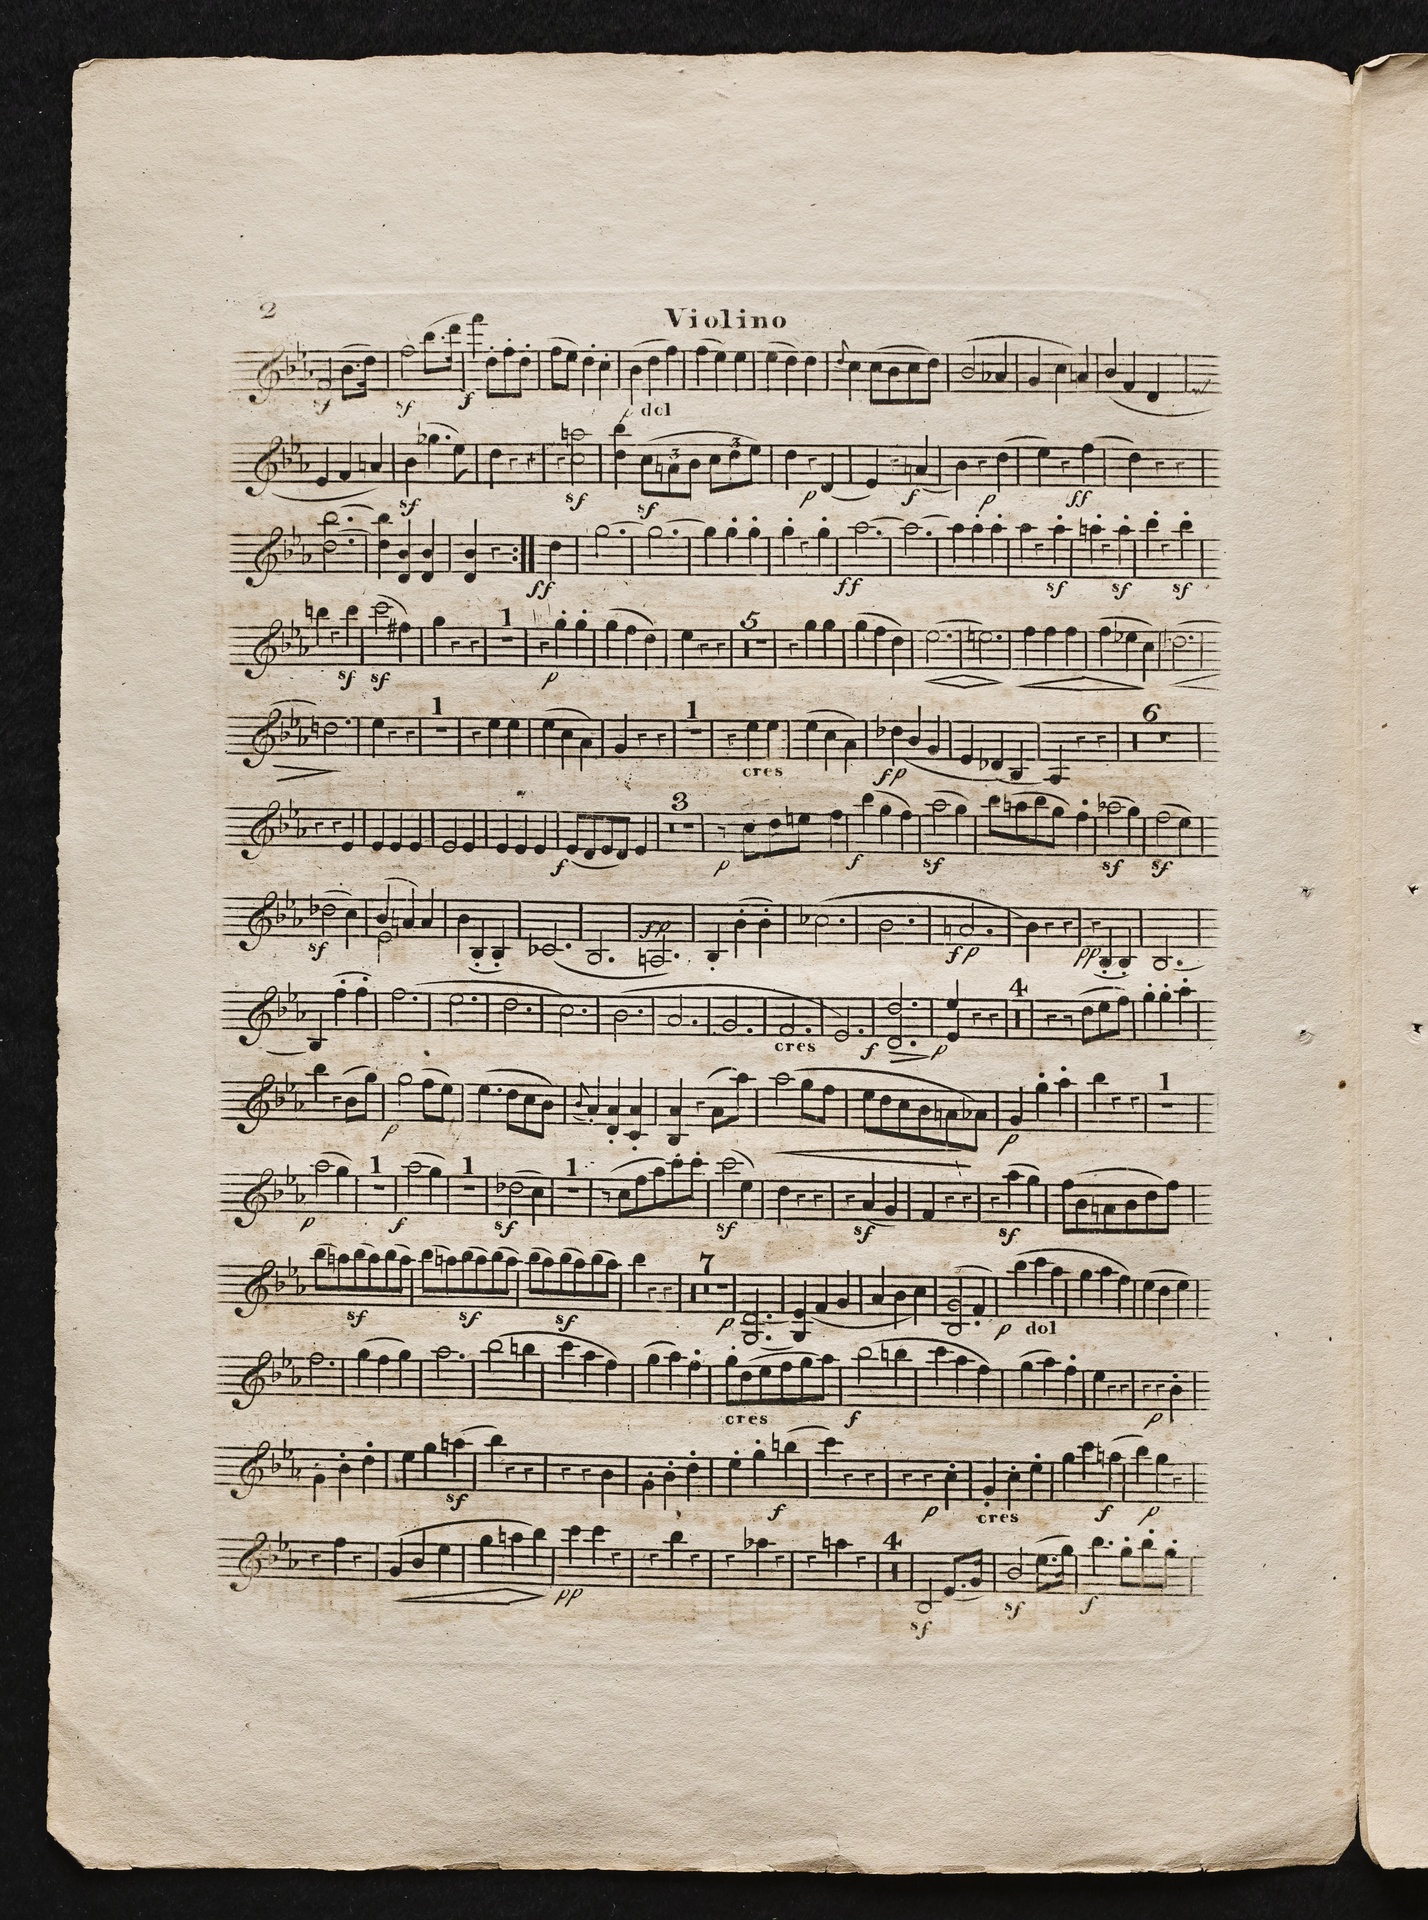 2
Violino
sf sf f p dol
sf sf 3 3 sf p f p ff
ff ff sf sf sf
1 5
sf sf p
1 1 6
cres fp
3
f p f sf sf sf
sf fp fp pp
4
cres f p
1
p p
1 1 1
p f sf sf sf sf
7
sf sf sf p p dol
cres f p
sf f p cres f p
4
pp sf sf f